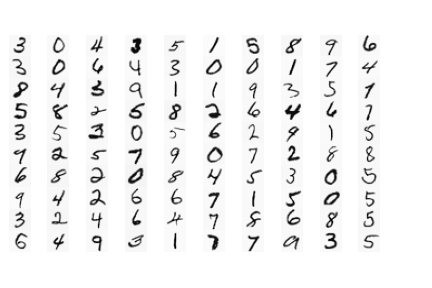 3 0 4 3 5 1 5 8 9 6
3 0 6 4 3 0 0 1 7 4
8 4 3 9 1 1 9 3 5 7
5 8 2 5 8 2 6 4 6 7
3 5 3 0 5 6 2 9 1 5
9 2 5 7 9 0 7 2 8 8
6 8 2 0 8 4 5 3 0 5
9 4 2 6 6 7 1 5 0 5
3 2 4 6 4 7 8 6 8 5
6 4 9 3 1 7 7 9 3 5